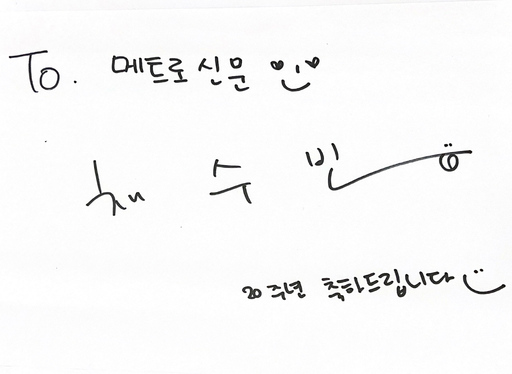 To. 메트로신문
채수빈
20주년 축하드립니다